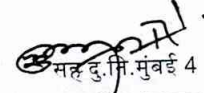 सह दु.नि.मुंबई 4